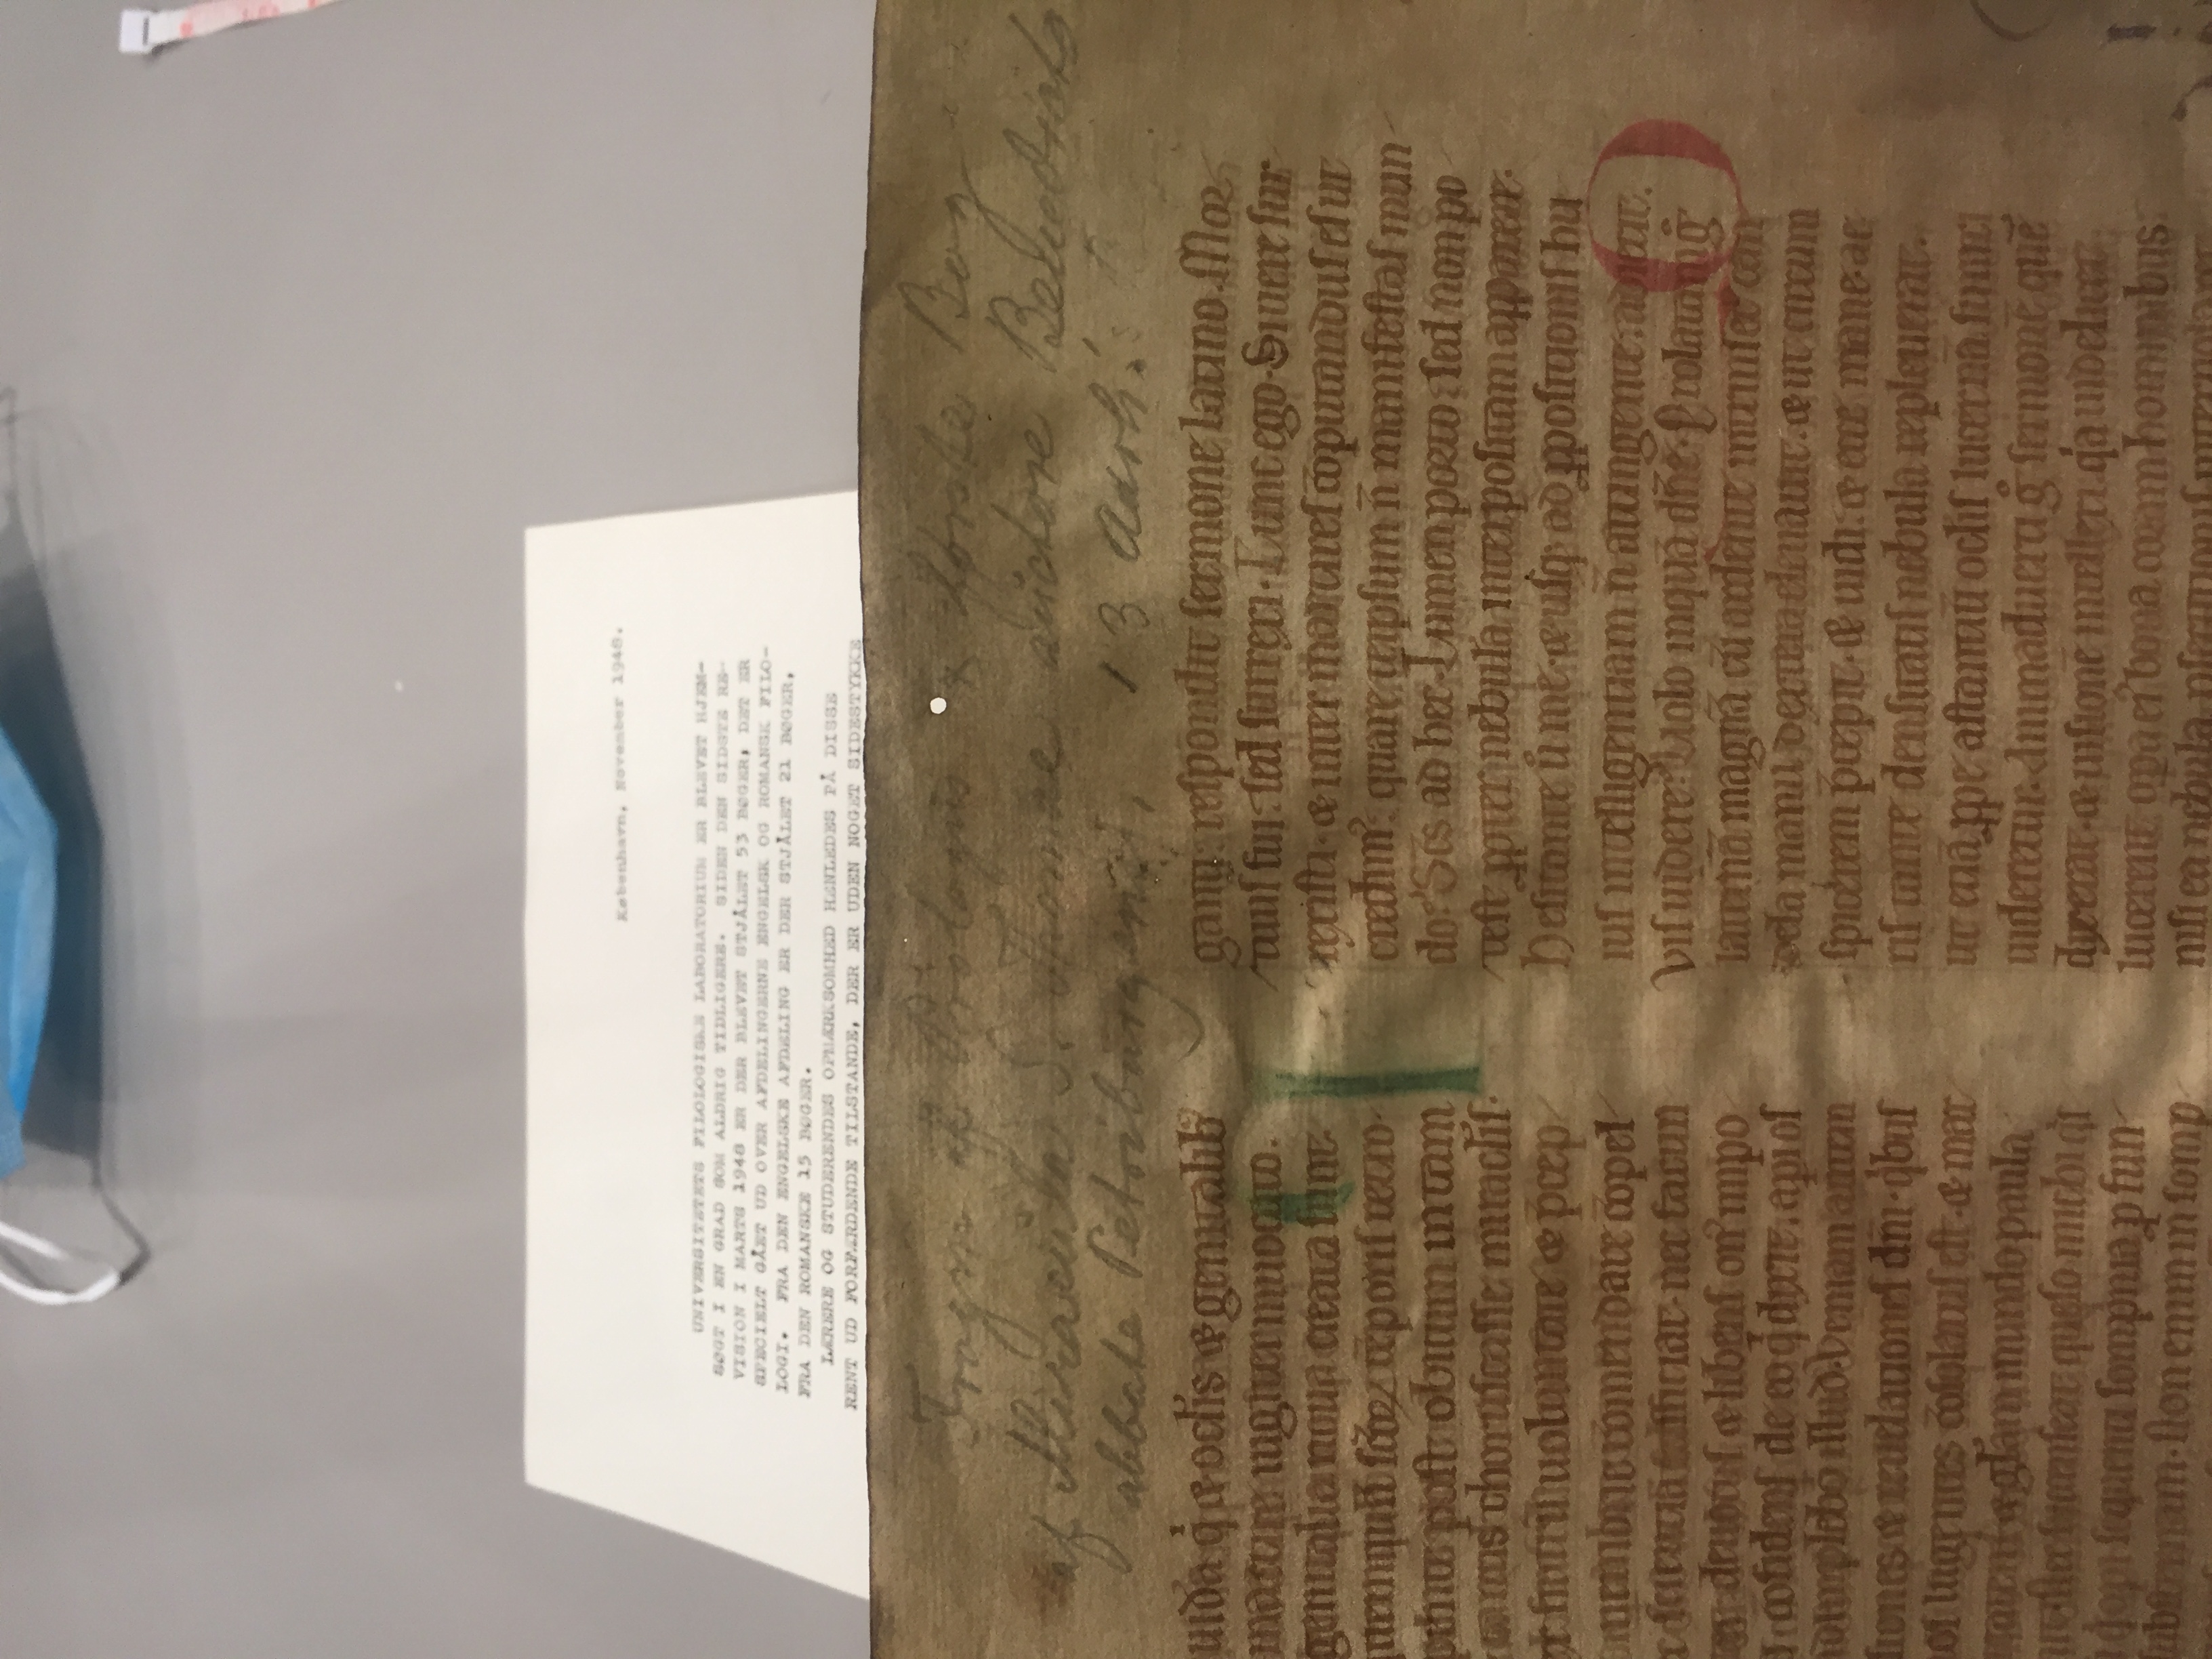 København, November 1948.
UNIVERSITETETS FILOLOGISKE LABORATORIUM ER BLEVET HJEM-
SØGT I EN GRAD SOM ALDRIG TIDLIGERE. SIDEN DEN SIDSTE RE-
VISION I MARTS 1948 ER DER BLEVET STJÅLET 53 BØGER, DET ER
SPECIELT GÅET UD OVER AFDELINGERNE ENGELSK OG ROMANSK FILO-
LOGI. FRA DEN ENGELSKE AFDELING ER DER STJÅLET 21 BØGER,
FRA DEN ROMANSKE 15 BØGER.
LÆRERE OG STUDERENDES OPMÆRKSOMHED HENLEDES PÅ DISSE
RENT UD FORFÆRDENDE TILSTANDE, DER ER UDEN NOGET SIDESTYKKE
Fragm af Prologus & første Bog
af Miracula S. Thomae auctore Benedicto
abbate Petriburgensi, 13 Aarh.
uida q̇ & oclis & genitalibꝰ
martire uigiter inuocato.
genitalia noua creata sunt.
sc̄oꝝ tēporis retro
post obitum in tam
choruscasse miraclis.
fratrū uoluntate & p̄cep
comendare cōpel
sciencia sufficiat. nec facun
deuotus & libens onꝰ impo
cōfidens de eo q̇ dixit. apı os
adimplebo illud. Veniam autem
siones & reuelationes dn̄i. q̇bus
os lugentes cōsolatus est. & mar
& gl̄am mundo paula
succenseat queso michi q̇s
sequenti sompnia ꝑ fun
Non enim in somp
ganti: respondit sermone latino. Mor
tuus fui: sed surrexi. Tunc ego. Si uere sur
rexisti. & inter martires cōputandus es ut
credimꝰ: quare teipsum n̄ manifestas mun
do? Sc̄s ad hec. Lumen porto: sed non po
test ꝓpter nebulā interpositam apparere.
Hesitante ů me. & usq; ad ꝓpositionis hu
ius intelligentiam n̄ attingente: adiecit.
Vis uidere? Uolo inquā dn̄e. Prolatam g̊
laternā magnā cū ardente intrinsec can
dela manu dextera eleuauit. & ut circum
spicerem p̄cepit. & uidi: & ecce mane ae
ris tante densitatis nebula repleuerat.
ut etiā ꝓpe astantiū oclis lucernā
uideretur. Animaduerti g̊ sermonē quē
dixerat. & uisionē intellexi. q̇a uidelicet
lucerent opa eiꝰ bona coram hominibus
nisi ea nebula ꝑsecutionis